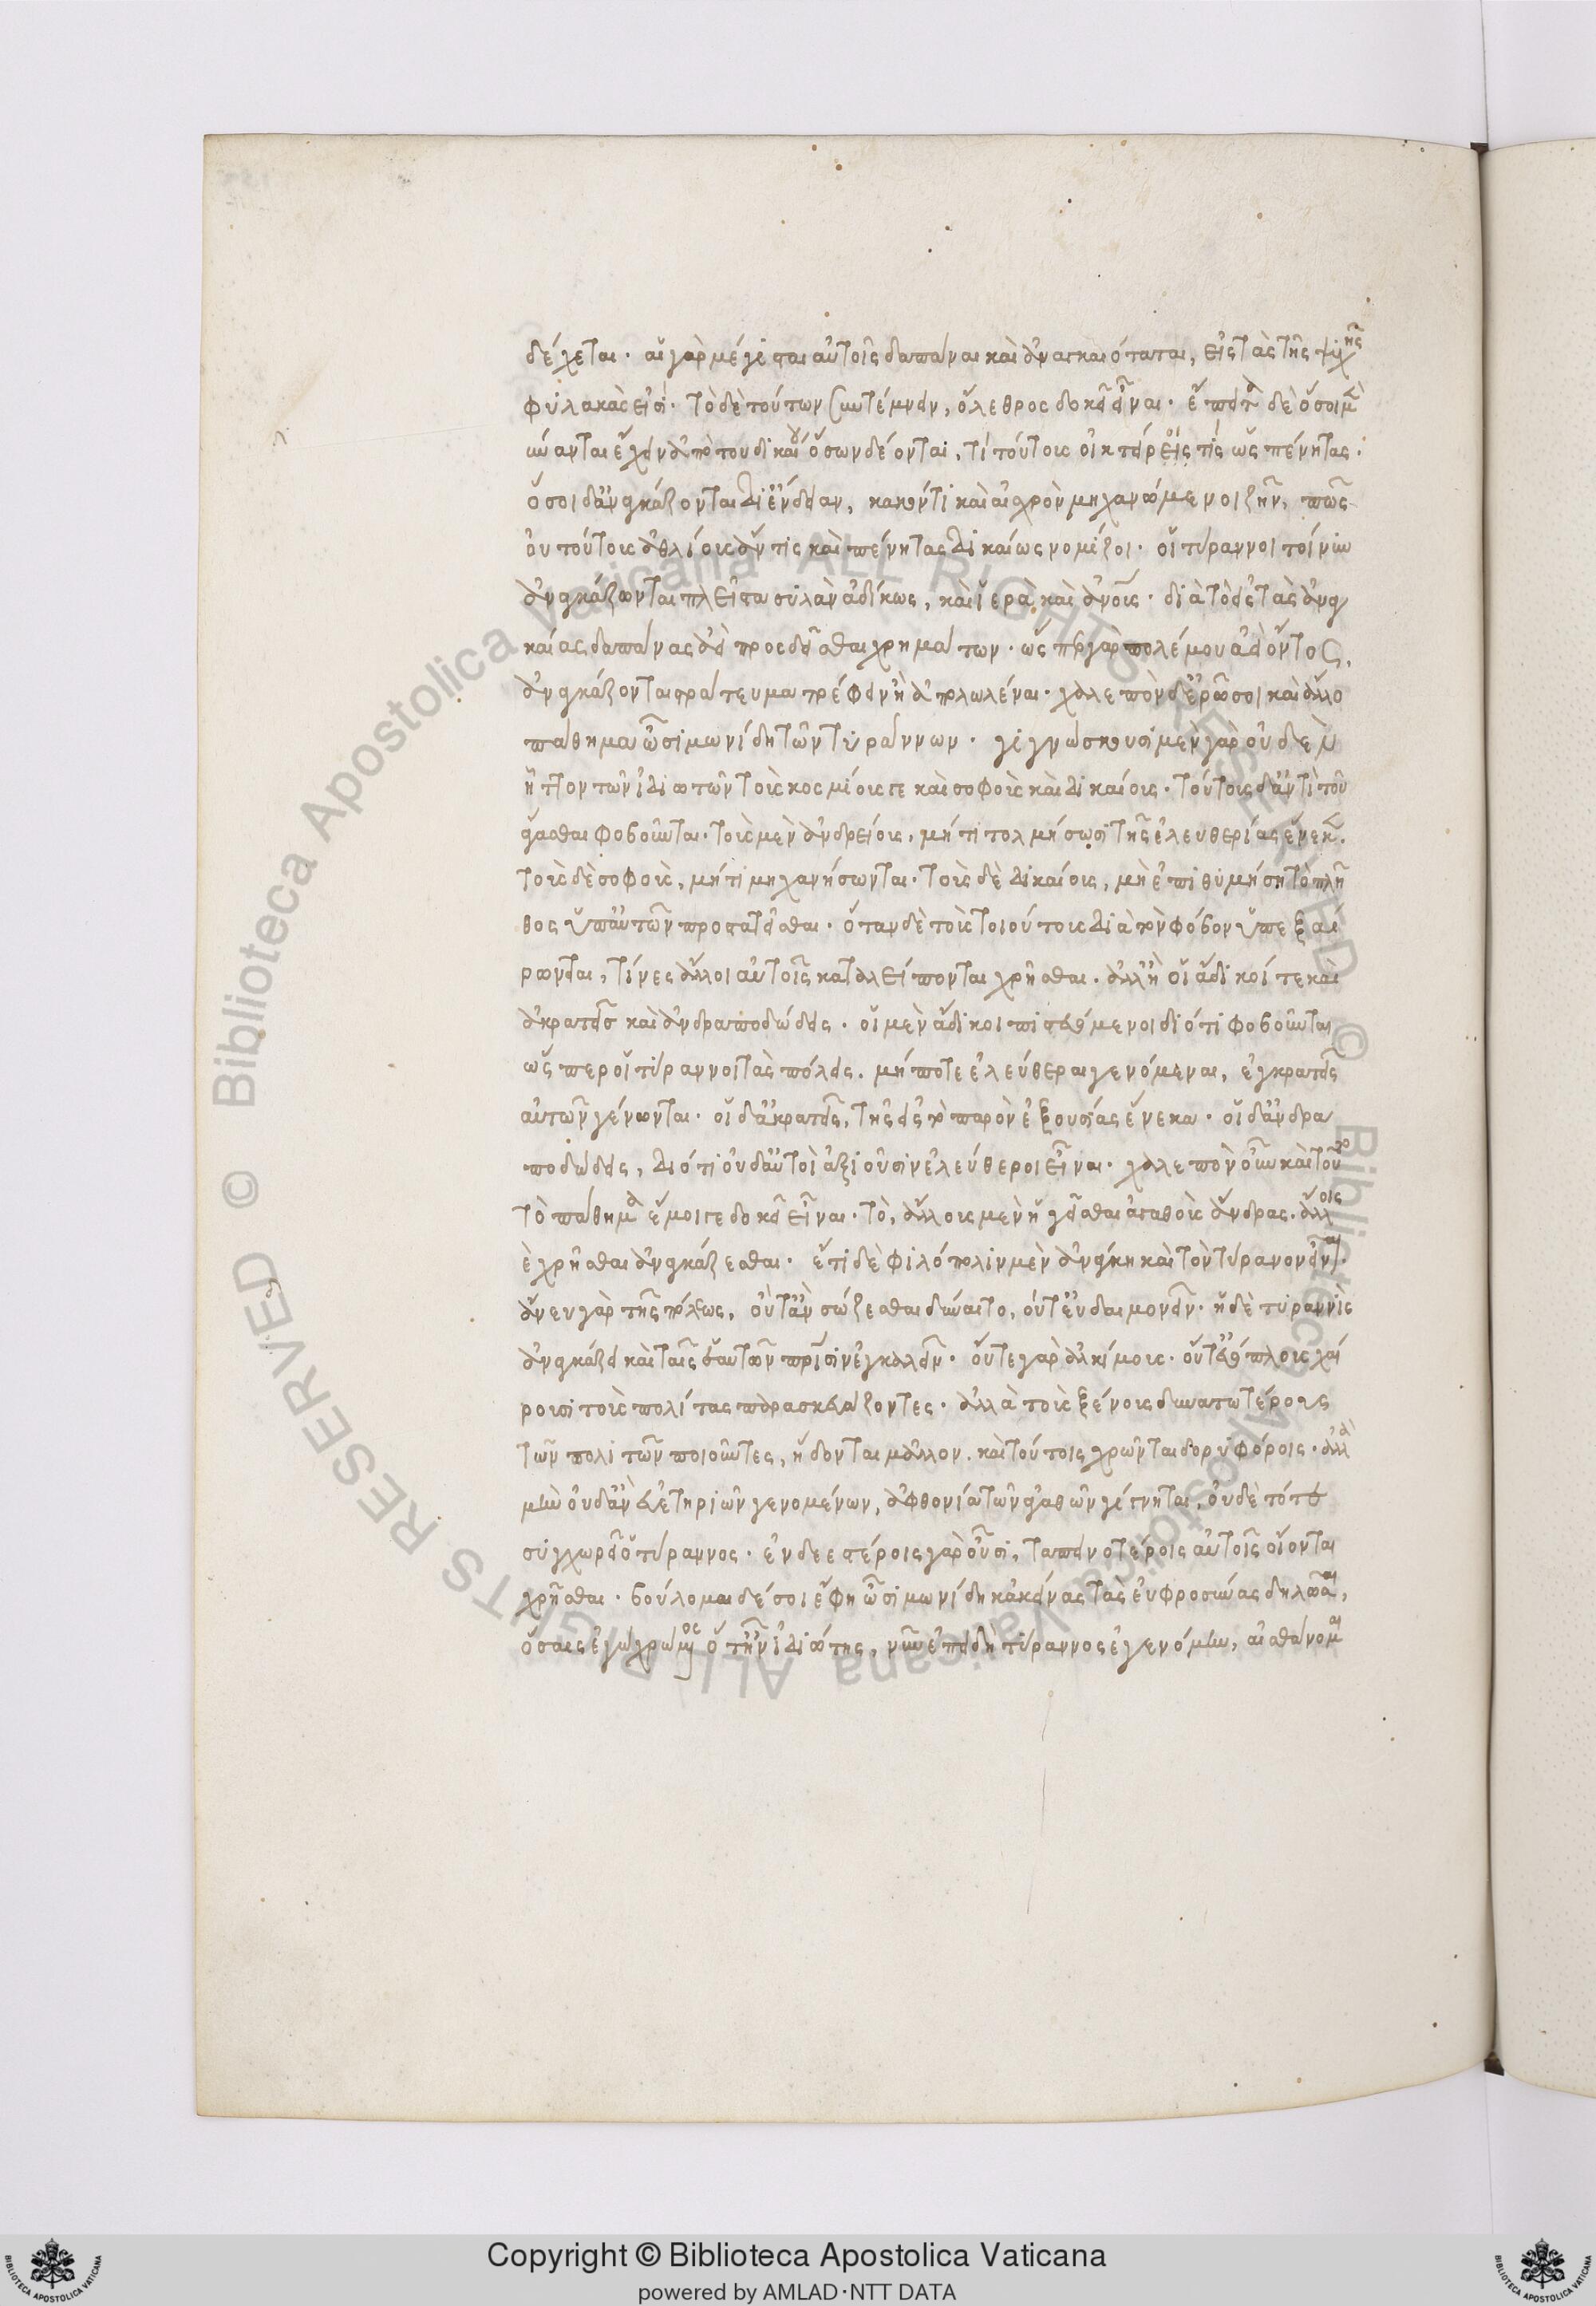 δέχεται· αἱ γὰρ μέγισται αὐτοῖς δαπάναι καὶ ἀναγκαιόταται, εἰς τὰς τῆς ψυχῆς
φυλακὰς εἰσί· τὸ δὲ τούτων συντέμνειν, ὄλεθρος δοκεῖ εἶναι· ἔπειτα δὲ ὅσοι μὲν
δύνανται ἔχειν ἀπὸ τοῦ δικαίου ὅσων δέονται, τί τούτοις οἰκτείρει τίς ὡς πένητας·
ὅσοι δ' ἀναγκάζονται δι' ἔνδειαν, κακόν τι καὶ αἰσχρὸν μηχανώμενοι ζῆν, πῶς
οὐ τούτοις ἀθλίοις ἄν τις καὶ πένητας δικαίως νομίζοι· οἱ τύραννοι τοίνυν
ἀναγκάζονται πλεῖστα συλᾶν ἀδίκως, καὶ ἱερὰ καὶ ἀνοις· διὰ τὸ εἰς τὰς ἀναγ
καίας δαπάνας ἀεὶ προσδεῖσθαι χρημάτων· ὥσπερ γὰρ πολέμου ἀεὶ ὄντος,
ἀναγκάζονται στράτευμα τρέφειν ἢ ἀπολωλέναι· χαλεπὸν δ' ἐρῶ σοι καὶ ἄλλο
πάθημα ὦ σιμωνίδη τῶν τυράννων· γιγνώσκουσι μὲν γὰρ οὐδὲν
ἧττον τῶν ἰδιωτῶν τοὺς κοσμίους τε καὶ σοφοὺς καὶ δικαίους· τούτοις δ' ἀντὶ τοῦ
ἄγασθαι φοβοῦνται· τοὺς μὲν ἀνδρείους, μή τι τολμήσωσι τῆς ἐλευθερίας ἕνεκα·
τοὺς δὲ σοφοὺς, μή τι μηχανήσωνται· τοὺς δὲ δικαίους, μὴ ἐπιθυμήσῃ τὸ πλῆ
θος ὑπ' αὐτῶν προστατεῖσθαι· ὅταν δὲ τοὺς τοιούτους διὰ τὸν φόβον ὑπεξαί
ρωνται, τίνες ἄλλοι αὐτοῖς καταλείπονται χρῆσθαι· ἀλλ' ἢ οἱ ἄδικοί τε καὶ
ἀκρατεῖς καὶ ἀνδραποδώδεις· οἱ μὲν ἄδικοι πιστευόμενοι διότι φοβοῦνται
ὥσπερ οἱ τύραννοι τὰς πόλεις· μήποτε ἐλεύθεραι γενόμεναι, ἐγκρατεῖς
αὐτῶν γένωνται· οἱ δ' ἀκρατεῖς, τῆς εἰς τὸ παρὸν ἐξουσίας ἕνεκα· οἱ δ' ἀνδρα
ποδώδεις, διότι οὐδ' αὐτοὶ ἀξιοῦσιν ἐλεύθεροι εἶναι· χαλεπὸν οὖν καὶ τοῦτο
τὸ πάθημα ἔμοιγε δοκεῖ εἶναι· τὸ, ἄλλους μὲν ἡγεῖσθαι ἀγαθοὺς ἄνδρας· ἄλλοις
δὲ χρῆσθαι ἀναγκάζεσθαι· ἔτι δὲ φιλόπολιν μὲν ἀνάγκη καὶ τὸν τύρανον εἶναι·
ἄνευ γὰρ τῆς πόλεως, οὔτ' ἂν σώζεσθαι δύναιτο, οὔτ' εὐδαιμονεῖν· ἡ δὲ τυραννὶς
ἀναγκάζει καὶ ταῖς ἑαυτῶν πατρίσιν ἐγκαλεῖν· οὔτε γὰρ ἀλκίμους· οὔτ' εὐόπλους χαί
ρουσι τοὺς πολίτας παρασκευάζοντες· ἀλλὰ τοὺς ξένους δυνατωτέρους
τῶν πολιτῶν ποιοῦντες, ἥδονται μᾶλλον· καὶ τούτοις χρῶνται δορυφόροις· ἀλλὰ
μὴν οὐδ' ἂν εὐετηριῶν γενομένων, ἀφθονία τῶν ἀγαθῶν γίγνηται, οὐδὲ τότε
συγχωρεῖ ὁ τύραννος· ἐνδεεστέροις γὰρ οὖσι, ταπεινοτέροις αὐτοῖς οἴονται
χρῆσθαι· βούλομαι δέ σοι ἔφη ὦ σιμωνίδη κἀκείνας τὰς εὐφροσύνας δηλῶσαι,
ὅσαις ἐγὼ χρώμενος ὅτ' ἦν ἰδιώτης, νῦν ἐπειδὴ τύραννος ἐγενόμην, αἰσθάνομαι
Copyright © Biblioteca Apostolica Vaticana
powered by AMLAD·NTT DATA